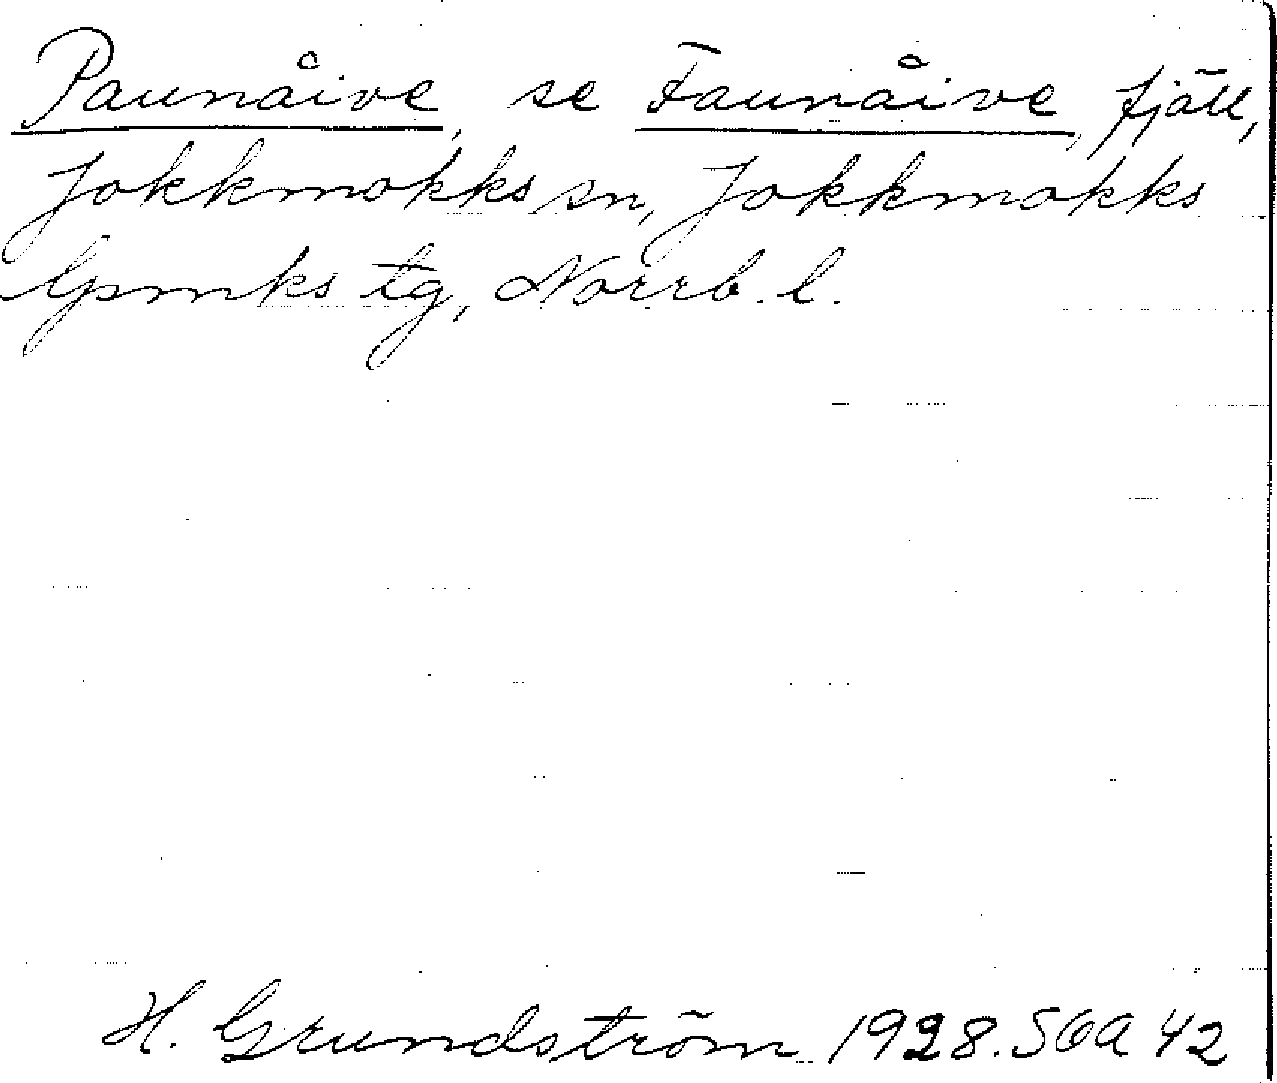 Paunåive, se Faunåive, fjäll,
Jokkmokks sn, Jokkmokks
lpmks tg, Norrb. l.
H. Grundström 1928. SOA 42